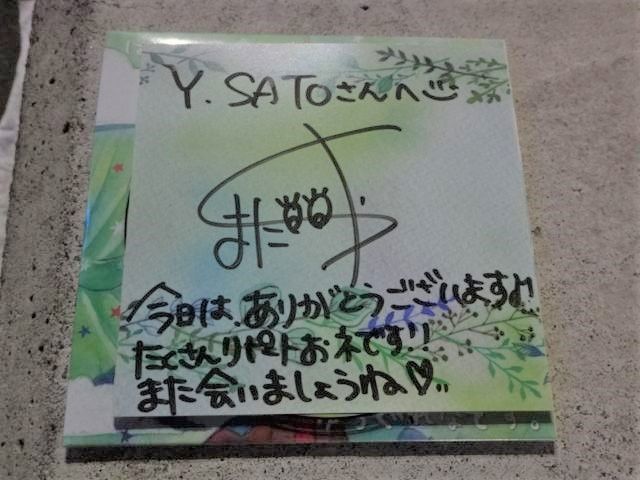 Y.SATOさんへ
また
今日は、ありがとうございます♪
たくさんリピートおネです!!
また会いましょうね♡